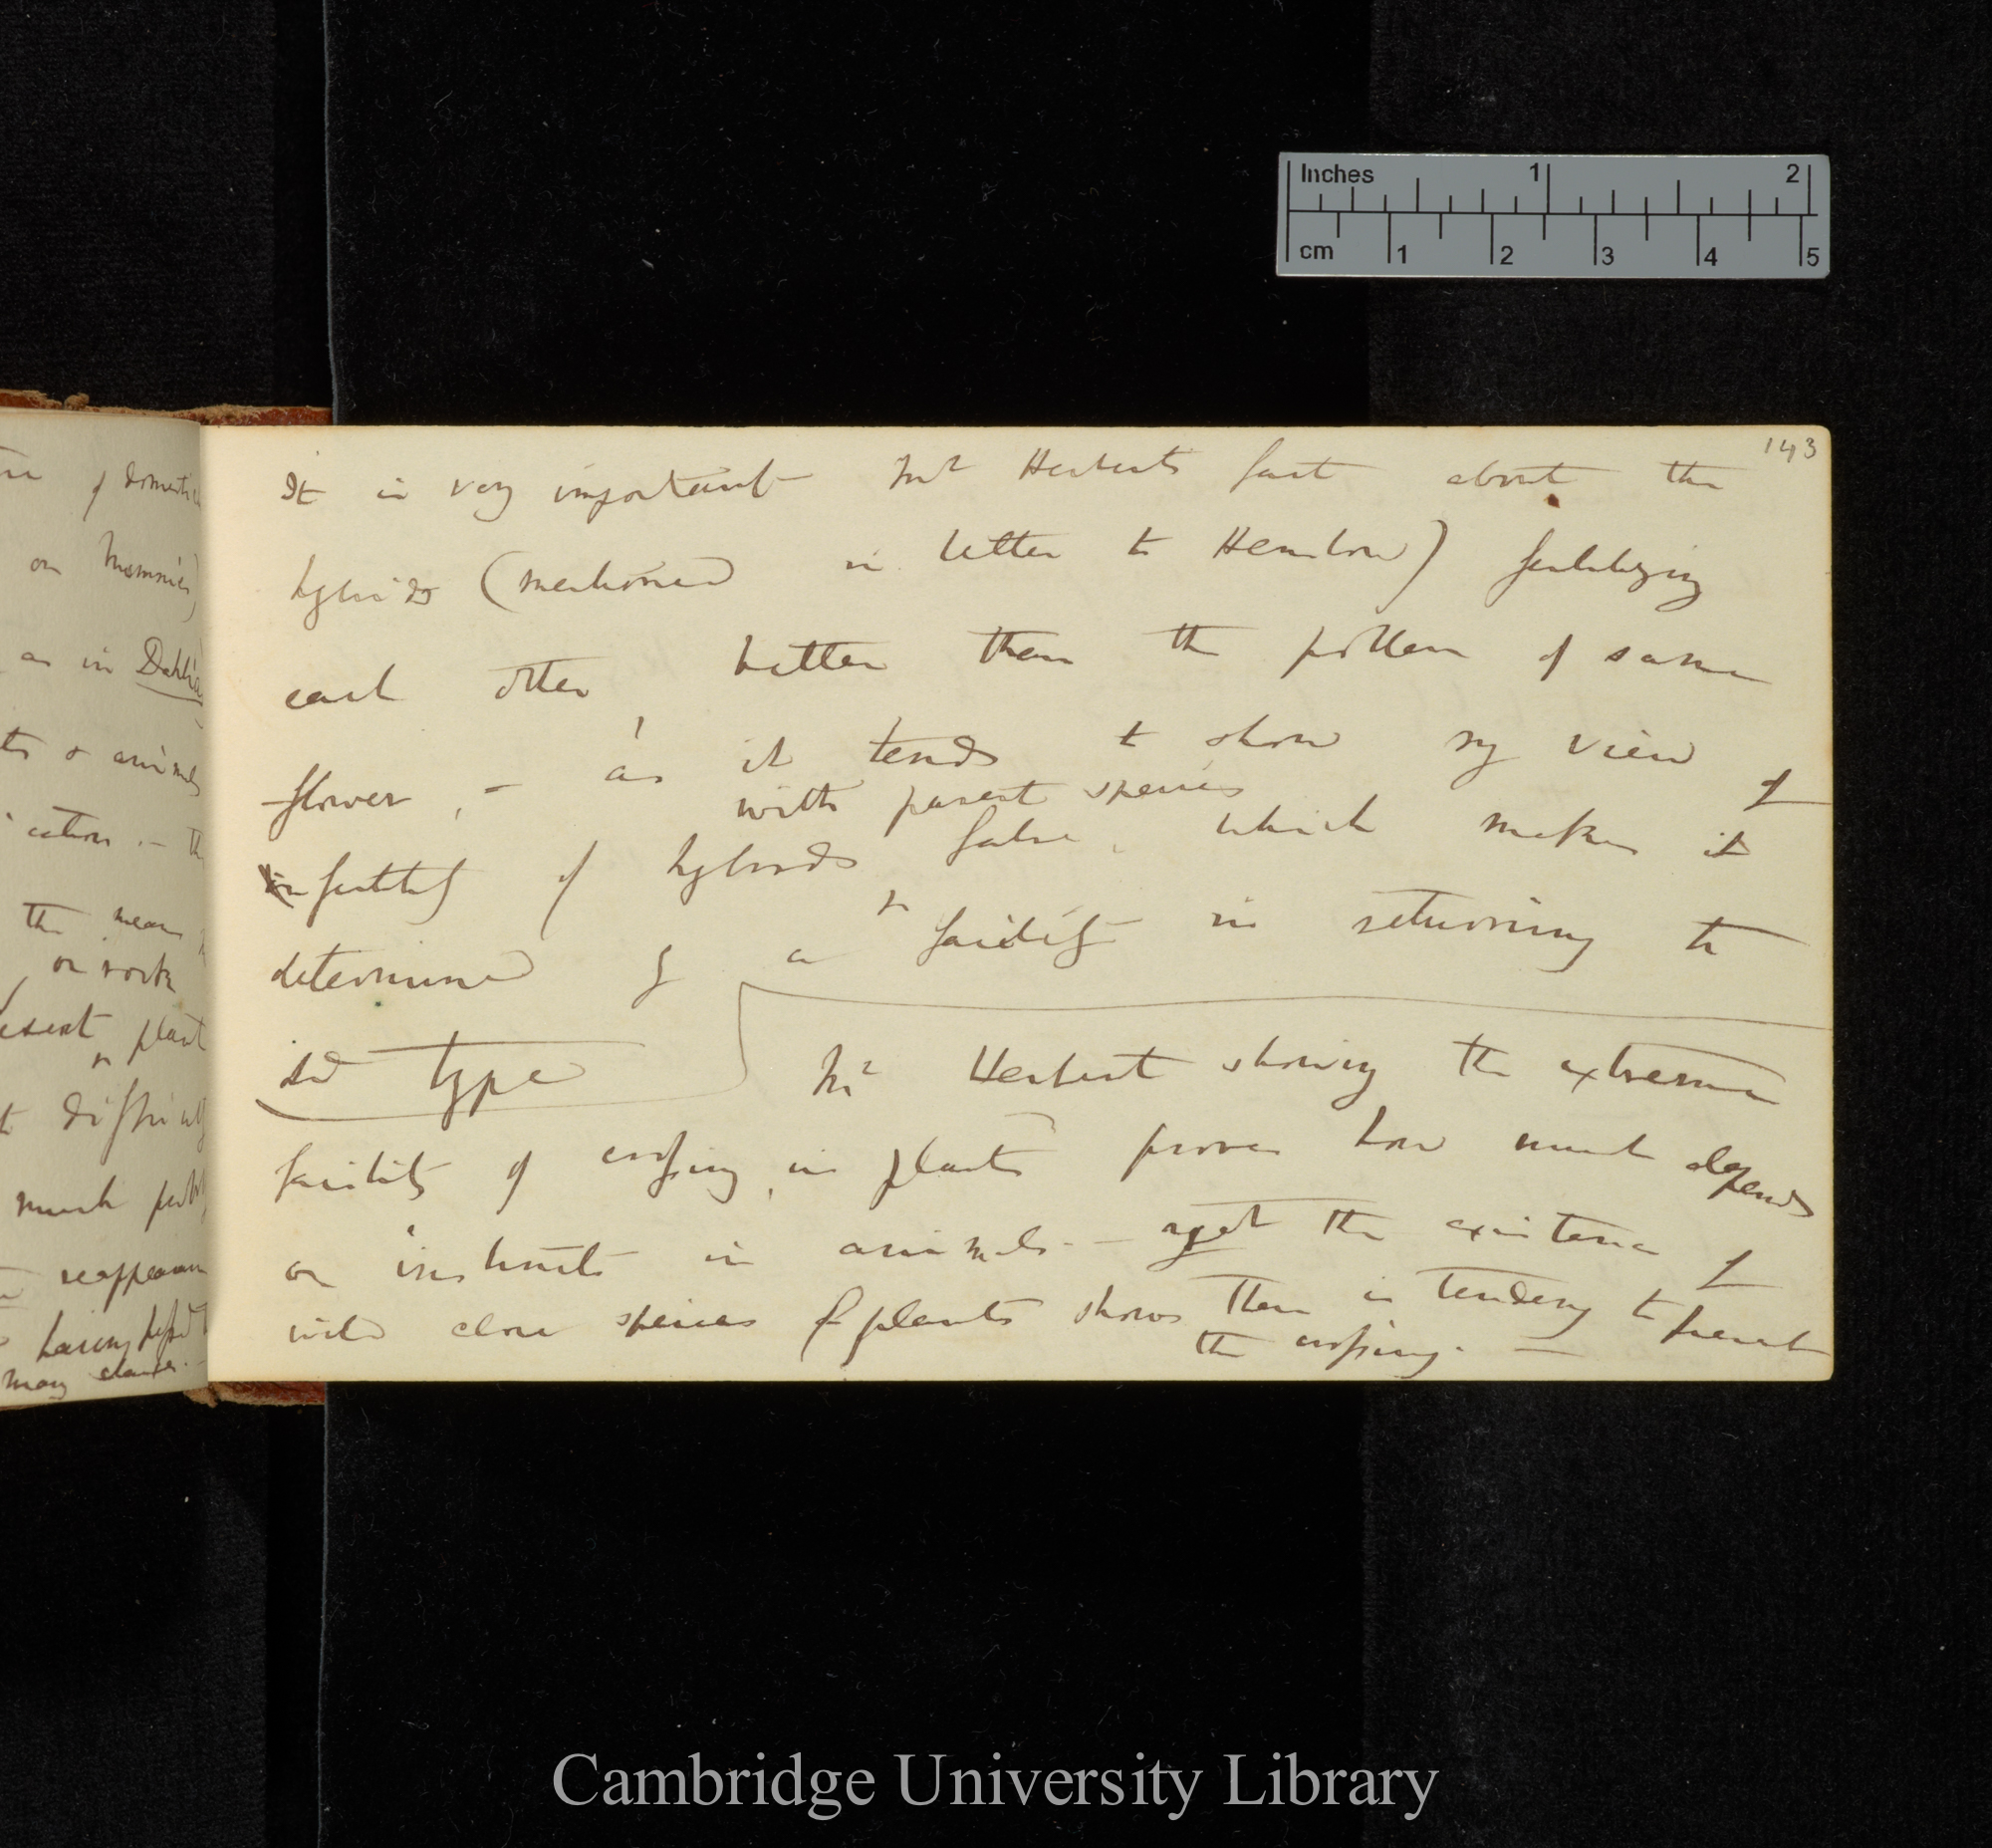 Inches 1 2
cm 1 2 3 4 5
143
It is very important Mr Herberts fact about the
hybrids (mentioned in letter to Henslow) fertilizing
each other better than the pollen of same
flower, – as it tends to show my view of
with parent species
infertility of hybrids false, which makes it
determined by a facility in returning to
old type
Mr Herbert showing the extreme
facility of crossing, in plants proves how much depends
on instincts in animals – yet the existence of
wild close species of plants shows there is tendency to prevent
the crossing. —
of domestic
on Mummies)
as in Dahlia
& animals
the mean
or rock
plant
much
having
many
Cambridge University Library